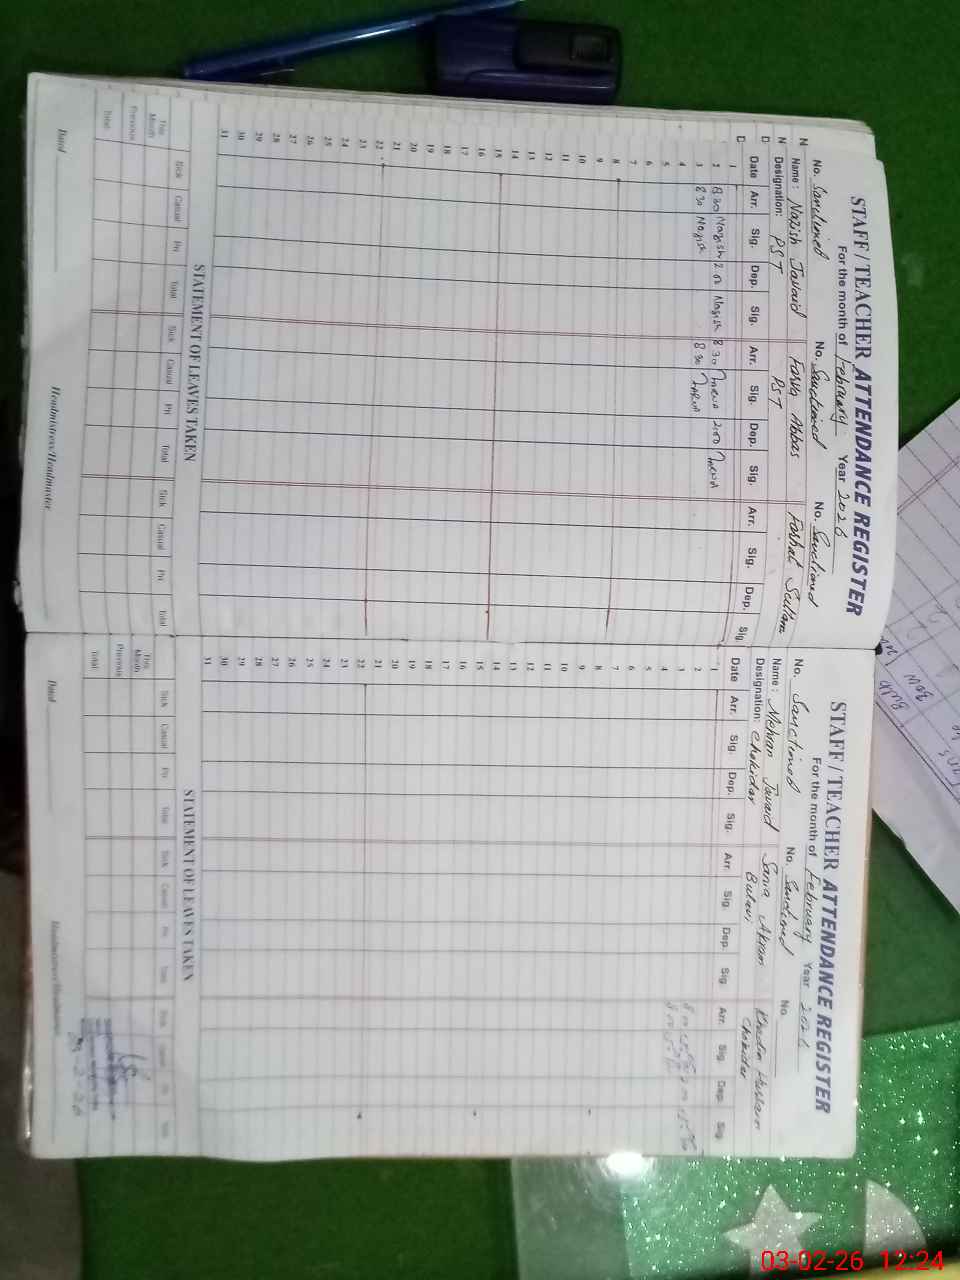 STAFF / TEACHER ATTENDANCE REGISTER
For the month of February Year 2026
No. Sanctioned No. Sanctioned No. Sanctioned
Name: Nazish Javaid Farwa Abbas Farhat Sultana
Designation: PST PST
Date Arr. Sig. Dep. Sig. Arr. Sig. Dep. Sig. Arr. Sig. Dep. Sig.
1
2 8 30 Nazish 2 00 Nazish 8 30 2:00
3 8 30 Nazish 8 30
4
5
6
7
8
9
10
11
12
13
14
15
16
17
18
19
20
21
22
23
24
25
26
27
28
29
30
31
STATEMENT OF LEAVES TAKEN
Sick Casual Pri Total Sick Casual Pri Total Sick Casual Pri Total
This Month
Previous
Total
Dated Headmistress/Headmaster
STAFF / TEACHER ATTENDANCE REGISTER
For the month of February Year 2026
No. Sanctioned No. Sanctioned No.
Name: Mehran Javaid Sania Akram Khadim Hussain
Designation: Chokidar Bulavi Chokidar
Date Arr. Sig. Dep. Sig. Arr. Sig. Dep. Sig. Arr. Sig. Dep. Sig.
1
2
3
4
5
6
7
8
9
10
11
12
13
14
15
16
17
18
19
20
21
22
23
24
25
26
27
28
29
30
31
STATEMENT OF LEAVES TAKEN
Sick Casual Pri Total Sick Casual Pri Total Sick Casual Pri Total
This Month
Previous
Total
Dated Headmistress/Headmaster
03-02-26 12:24